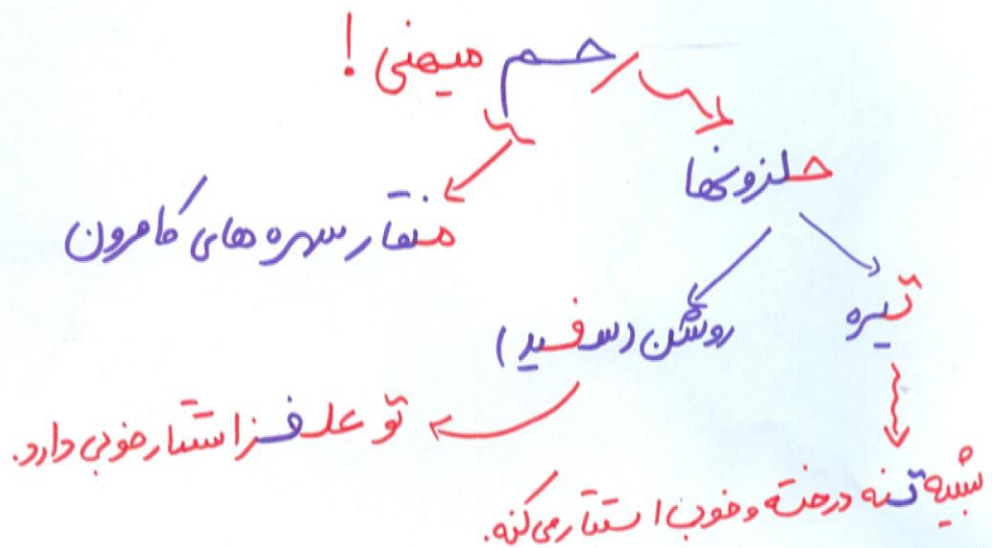 حم میهنی !
حلزونها
منقار سهره های کامرون
تیره
روشن (سفید)
تو علفزا استتار خوبی دارد.
شبیه تنه درخته و خوب استتار می کنه.